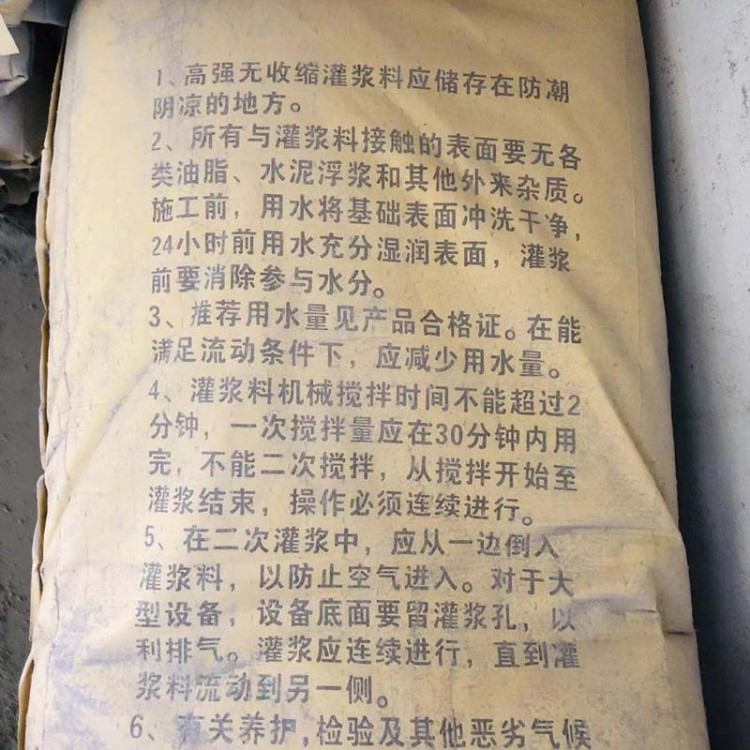 1、高强无收缩灌浆料应储存在防潮
阴凉的地方。
2、所有与灌浆料接触的表面要无各
类油脂、水泥浮浆和其他外来杂质。
施工前，用水将基础表面冲洗干净，
24小时前用水充分湿润表面，灌浆
前要消除参与水分。
3、推荐用水量见产品合格证。在能
满足流动条件下，应减少用水量。
4、灌浆料机械搅拌时间不能超过2
分钟，一次搅拌量应在30分钟内用
完，不能二次搅拌，从搅拌开始至
灌浆结束，操作必须连续进行。
5、在二次灌浆中，应从一边倒入
灌浆料，以防止空气进入。对于大
型设备，设备底面要留灌浆孔，以
利排气。灌浆应连续进行，直到灌
浆料流动到另一侧。
6、有关养护,检验及其他恶劣气候